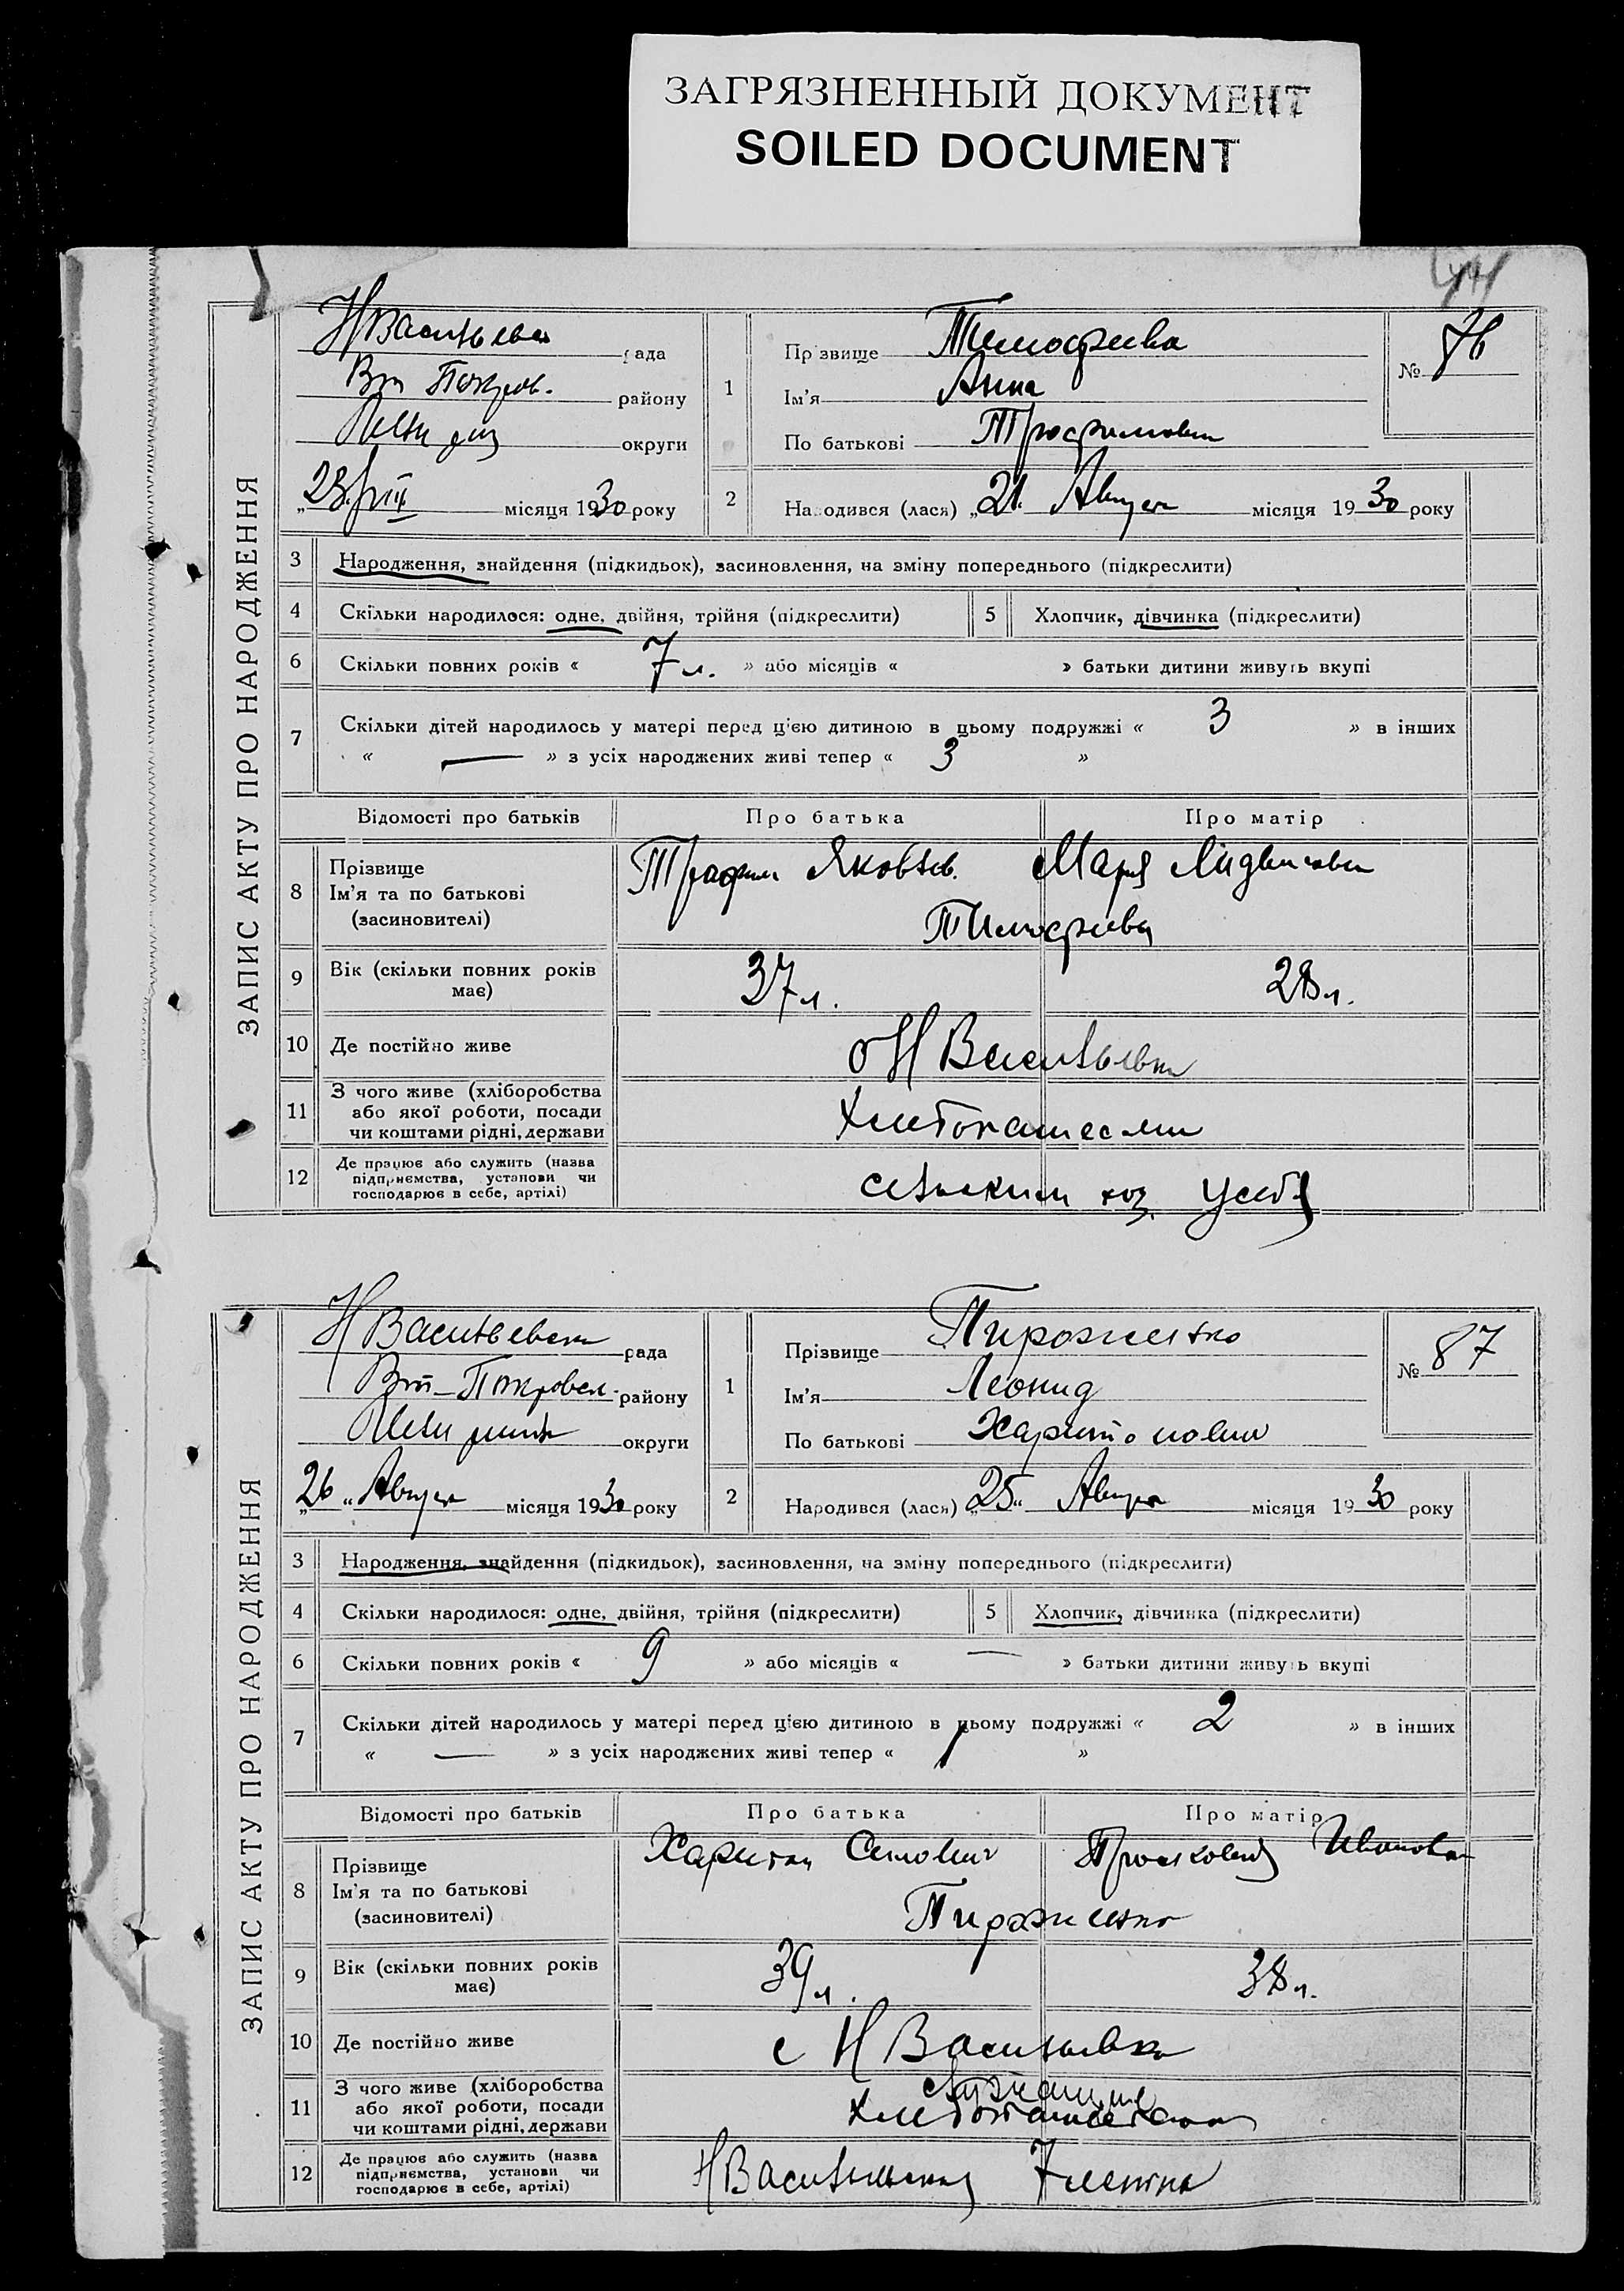 ЗАГРЯЗНЕННЫЙ ДОКУМЕНТ
SOILED DOCUMENT
ЗАПИС АКТУ ПРО НАРОДЖЕННЯ
рада
району
округи
23. VIII місяця 1930 року
1
Прізвище Тимофеева
Ім'я Анна
По батькові Трофимовна
№ 76
2
Народився (лася) „21. Августа місяця 1930 року
3 Народження, знайдення (підкидьок), засиновлення, на зміну попереднього (підкреслити)
4 Скільки народилося: одне, двійня, трійня (підкреслити)
5 Хлопчик, дівчинка (підкреслити)
6 Скільки повних років « 7 л. » або місяців « » батьки дитини живуть вкупі
7 Скільки дітей народилось у матері перед ц'єю дитиною в цьому подружжі « 3 » в інших
« — » з усіх народжених живі тепер « 3 »
Відомості про батьків Про батька Про матір
8 Прізвище
Ім'я та по батькові
(засиновителі)
Трофим Яковлев. Мария
Тимофеевы
9 Вік (скільки повних років має)
37 л. 28 л.
10 Де постійно живе
Н Васильевка
11 З чого живе (хліборобства
або якої роботи, посади
чи коштами рідні, держави
12 Де працює або служить (назва
підприємства, установи чи
господарює в себе, артілі)
хоз. у себя
ЗАПИС АКТУ ПРО НАРОДЖЕННЯ
Н Васильевская рада
Вт-Покровск. району
округи
„26„ Августа місяця 1930 року
1
Прізвище Пироженко
Ім'я Леонид
По батькові Харитонович
№ 87
2
Народився (лася) „25„ Августа місяця 1930 року
3 Народження, знайдення (підкидьок), засиновлення, на зміну попереднього (підкреслити)
4 Скільки народилося: одне, двійня, трійня (підкреслити)
5 Хлопчик, дівчинка (підкреслити)
6 Скільки повних років « 9 » або місяців « — » батьки дитини живуть вкупі
7 Скільки дітей народилось у матері перед ц'єю дитиною в цьому подружжі « 2 » в інших
« — » з усіх народжених живі тепер « 1 »
Відомості про батьків Про батька Про матір
8 Прізвище
Ім'я та по батькові
(засиновителі)
Харитон Ивановна
Пироженко
9 Вік (скільки повних років має)
39 л. 38 л.
10 Де постійно живе
с Н Васильевка
11 З чого живе (хліборобства
або якої роботи, посади
чи коштами рідні, держави
12 Де працює або служить (назва
підприємства, установи чи
господарює в себе, артілі)
Н Васильевская